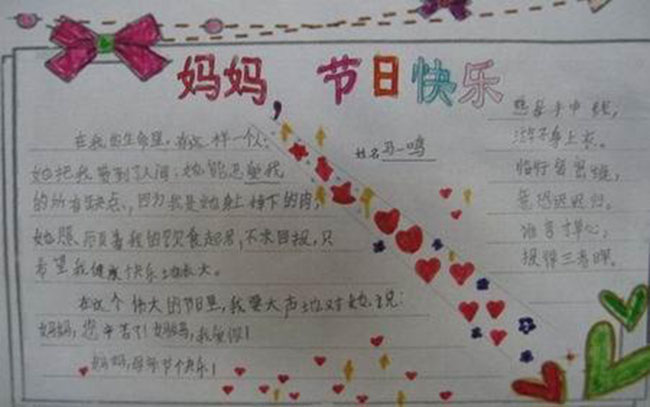 妈妈，节日快乐
姓名马一鸣
在我的生命里，有这样一个人：
她把我带到了人间，她能忍受我
的所有缺点，因为我是她身上掉下的肉，
她照顾着我的饮食起居，不求回报，只
希望我健康快乐地长大。
在这个伟大的节日里，我要大声地对她说：
妈妈，您辛苦了！妈妈，我爱你！
妈妈，母亲节快乐！
慈母手中线，
游子身上衣。
临行密密缝，
意恐迟迟归。
谁言寸草心，
报得三春晖。